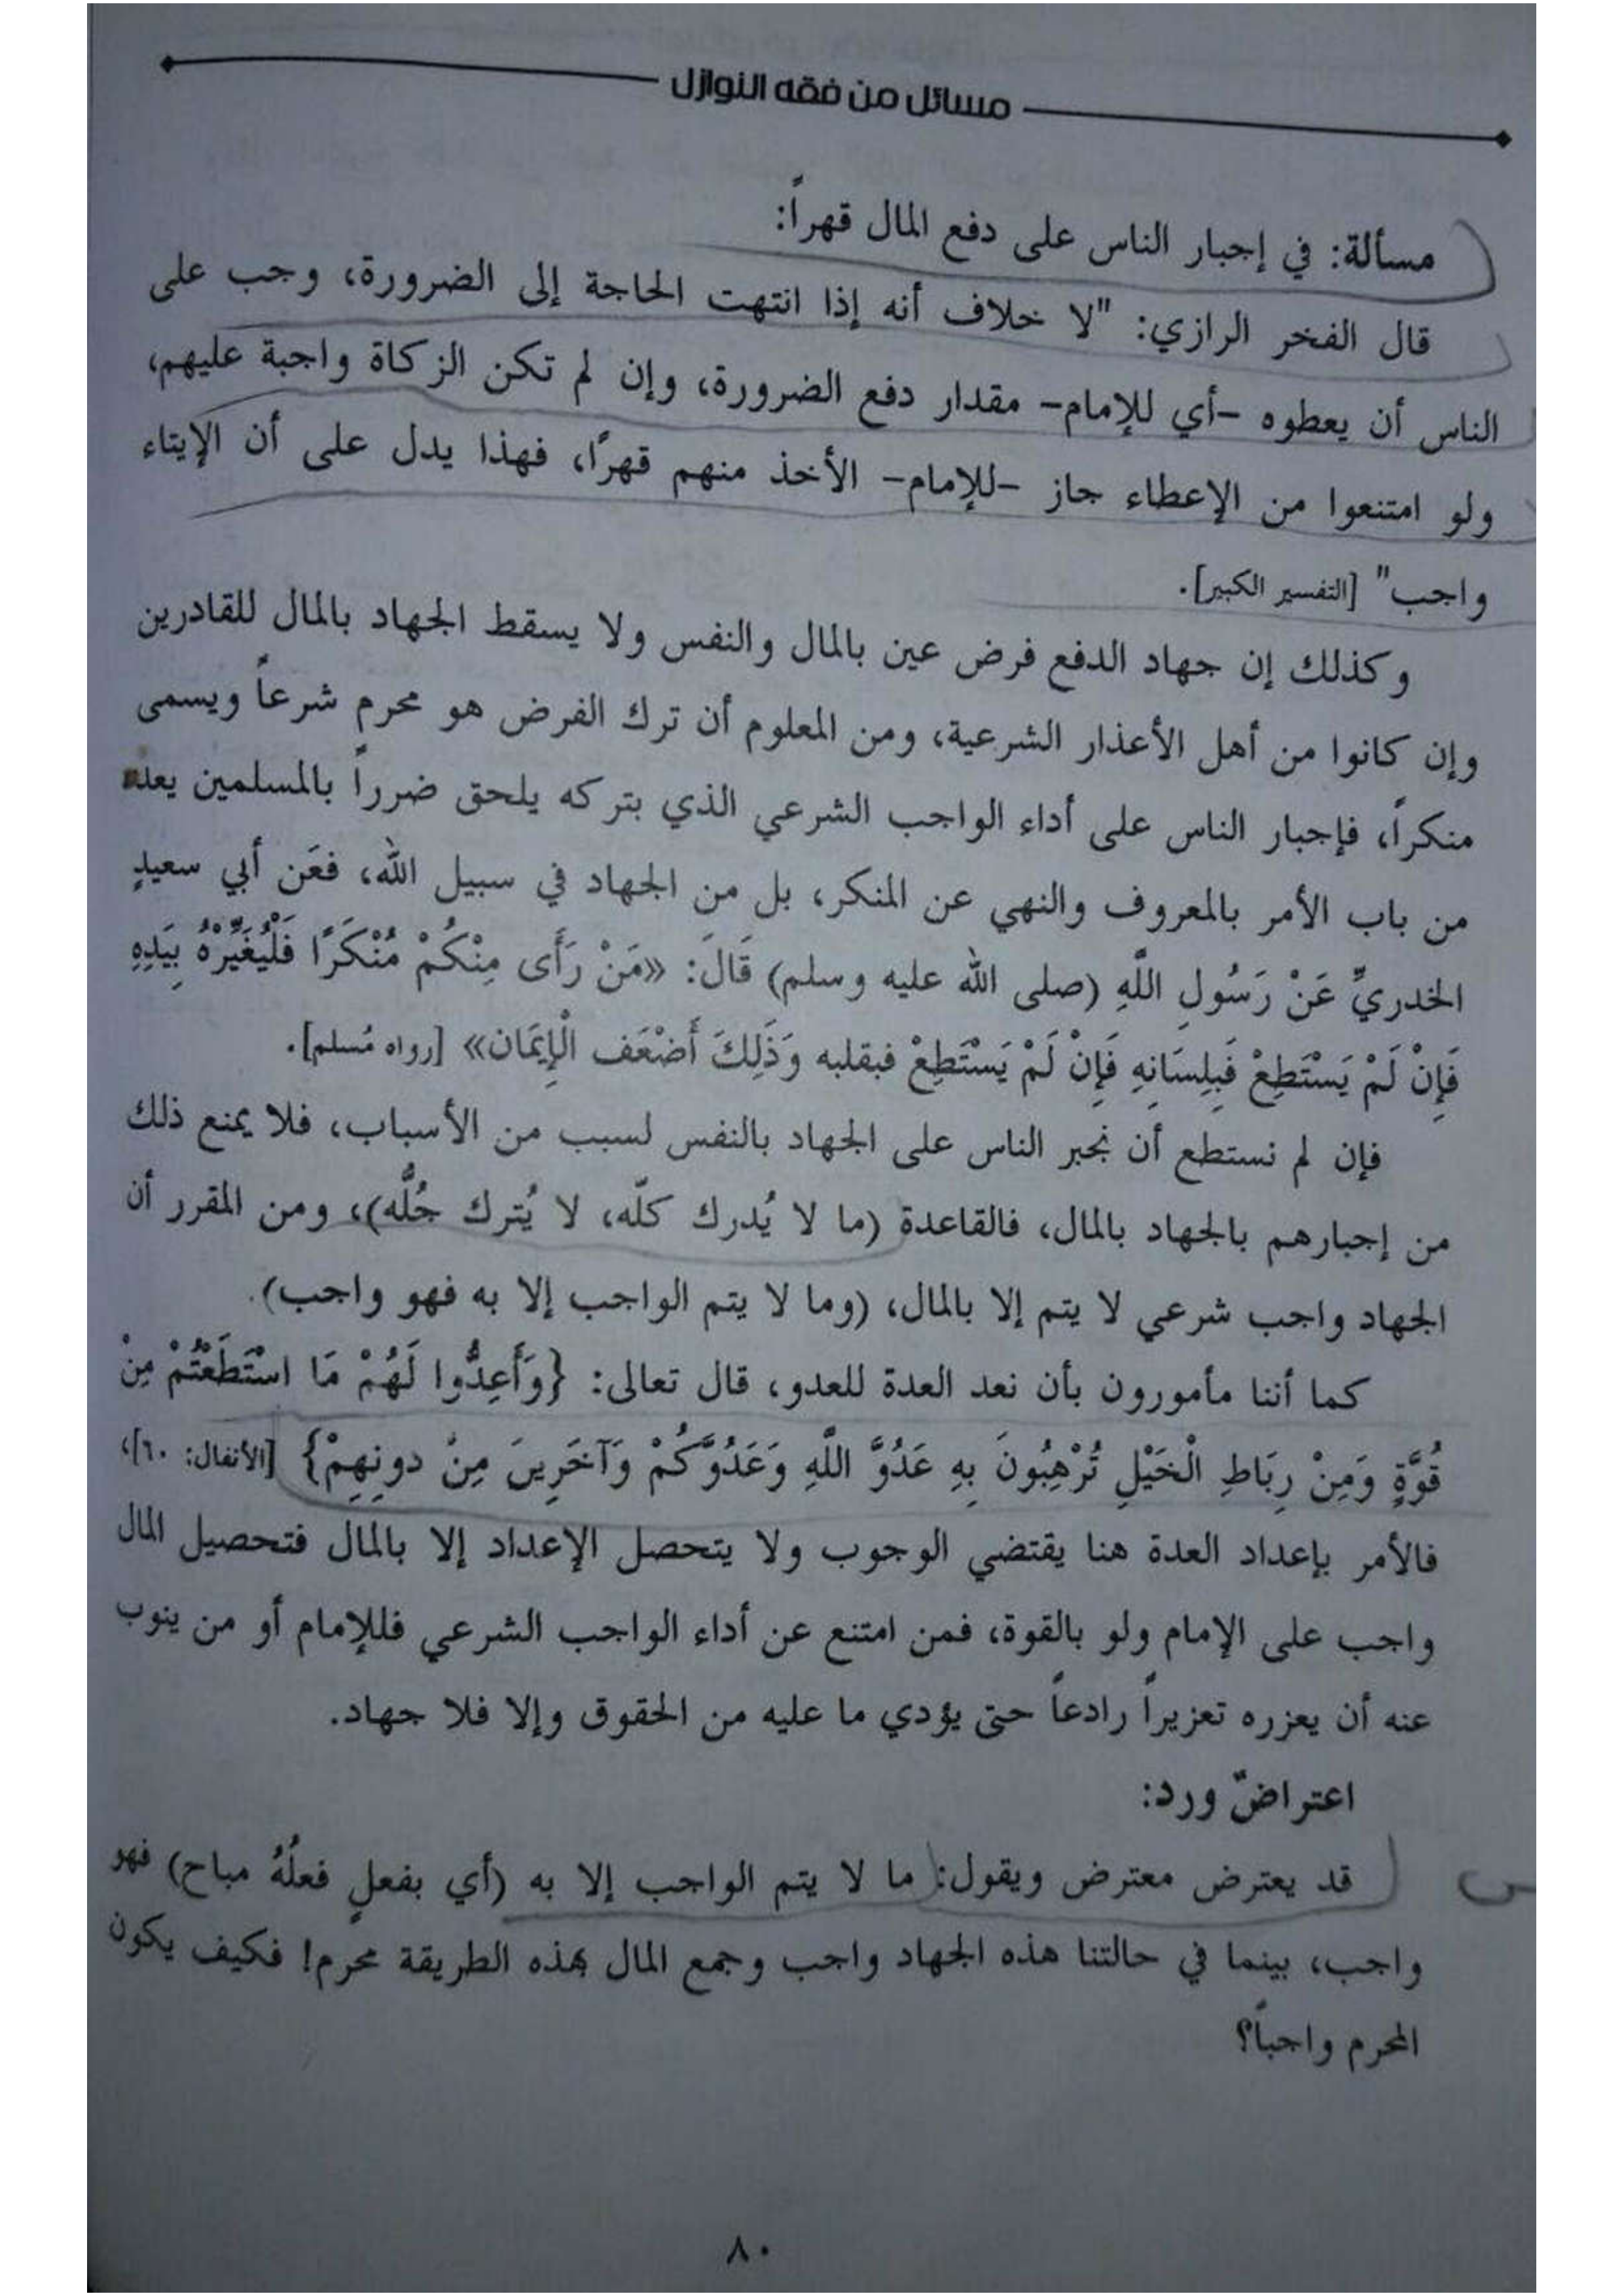 مسائل من فقه النوازل
مسألة: في إجبار الناس على دفع المال قهراً:
قال الفخر الرازي: "لا خلاف أنه إذا انتهت الحاجة إلى الضرورة، وجب على
الناس أن يعطوه -أي للإمام- مقدار دفع الضرورة، وإن لم تكن الزكاة واجبة عليهم،
ولو امتنعوا من الإعطاء جاز -للإمام- الأخذ منهم قهرًا، فهذا يدل على أن الإيتاء
واجب" [التفسير الكبير].
وكذلك إن جهاد الدفع فرض عين بالمال والنفس ولا يسقط الجهاد بالمال للقادرين
وإن كانوا من أهل الأعذار الشرعية، ومن المعلوم أن ترك الفرض هو محرم شرعاً ويسمى
منكراً، فإجبار الناس على أداء الواجب الشرعي الذي بتركه يلحق ضرراً بالمسلمين يعد
من باب الأمر بالمعروف والنهي عن المنكر، بل من الجهاد في سبيل الله، فعَن أبي سعيدٍ
الخدريِّ عَنْ رَسُولِ اللَّهِ (صلى الله عليه وسلم) قَالَ: «مَنْ رَأَى مِنْكُمْ مُنْكَرًا فَلْيُغَيِّرْهُ بِيَدِهِ
فَإِنْ لَمْ يَسْتَطِعْ فَبِلِسَانِهِ فَإِنْ لَمْ يَسْتَطِعْ فبقلبه وَذَلِكَ أَضْعَف الْإِيمَان» [رواه مُسلم].
فإن لم نستطع أن نجبر الناس على الجهاد بالنفس لسبب من الأسباب، فلا يمنع ذلك
من إجبارهم بالجهاد بالمال، فالقاعدة (ما لا يُدرك كلّه، لا يُترك جُلُّه)، ومن المقرر أن
الجهاد واجب شرعي لا يتم إلا بالمال، (وما لا يتم الواجب إلا به فهو واجب).
كما أننا مأمورون بأن نعد العدة للعدو، قال تعالى: {وَأَعِدُّوا لَهُمْ مَا اسْتَطَعْتُمْ مِنْ
قُوَّةٍ وَمِنْ رِبَاطِ الْخَيْلِ تُرْهِبُونَ بِهِ عَدُوَّ اللَّهِ وَعَدُوَّكُمْ وَآخَرِينَ مِنْ دونِهِمْ} [الأنفال: ٦٠]،
فالأمر بإعداد العدة هنا يقتضي الوجوب ولا يتحصل الإعداد إلا بالمال فتحصيل المال
واجب على الإمام ولو بالقوة، فمن امتنع عن أداء الواجب الشرعي فللإمام أو من ينوب
عنه أن يعزره تعزيراً رادعاً حتى يؤدي ما عليه من الحقوق وإلا فلا جهاد.
اعتراضٌ ورد:
قد يعترض معترض ويقول: ما لا يتم الواجب إلا به (أي بفعلٍ فعلُهُ مباح) فهو
واجب، بينما في حالتنا هذه الجهاد واجب وجمع المال بهذه الطريقة محرم! فكيف يكون
المحرم واجباً؟
٨٠